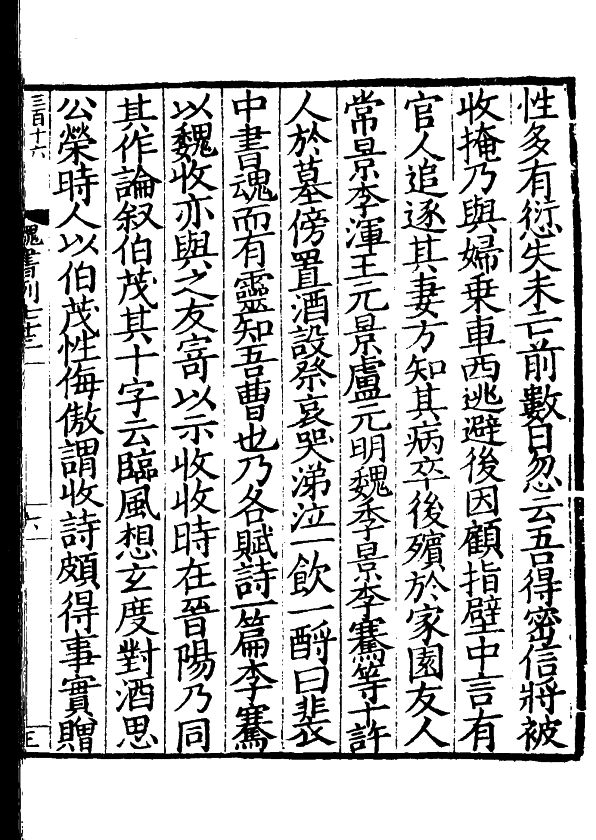 性多有愆失未亡前數日忽云吾得密信將被
收掩乃與婦乗車西逃避後因顧指壁中言有
官人追逐其妻方知其病卒後殯於家園友人
常景李渾王元景盧元明魏季景李騫等十許
人於墓傍置酒設祭哀哭涕泣一飲一酹曰裴
中書魂而有靈知吾曹也乃各賦詩一篇李騫
以魏收亦與之友寄以示收收時在晉陽乃同
其作論叙伯茂其十字云臨風想玄度對酒思
公榮時人以伯茂性侮傲謂收詩頗得事實贈
三百十六
魏書列七十三
六